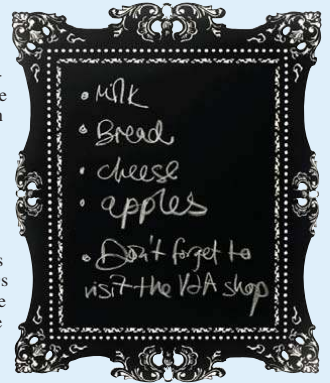 • Milk
• Bread
• cheese
• apples
• Don't forget to
visit the V&A shop